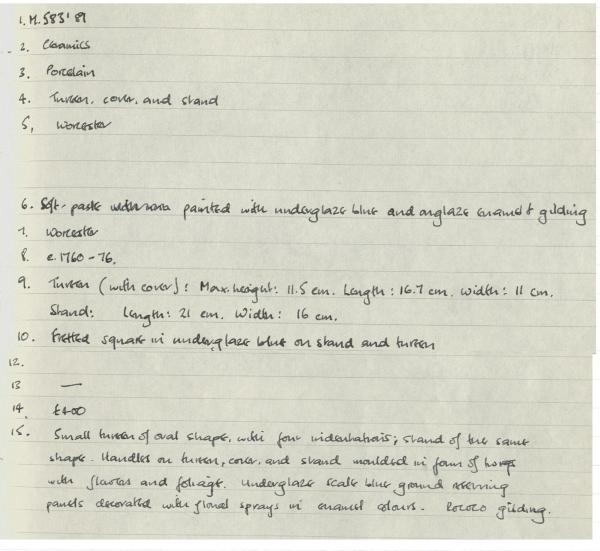 1. M.583'81
2. Ceramics
3. Porcelain
4. Tureen, cover, and stand
5, Worcester
6. Soft-paste painted with underglaze blue and onglaze enamel & gilding
7. Worcester
8. c.1760-76.
9. Tureen (with cover): Max. height: 11.5 cm. Length: 16.7 cm. Width: 11 cm.
Stand: Length: 21 cm. Width: 16 cm.
10. Fretted square in underglaze blue on stand and tureen
12.
13 —
14. £400
15. Small tureen of oval shape, with four indentations; stand of the same
shape. Handles on tureen, cover, and stand moulded in form of
with flowers and foliage. Underglaze scale blue ground reserving
panels decorated with floral sprays in enamel colours. Rococo gilding.